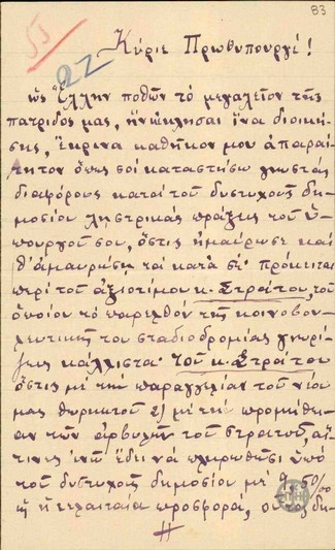 83
53
22
Κύριε Πρωθυπουργέ!
ὡς Ἕλλην ποθῶν τὸ μεγαλεῖον τῆς
πατρίδος μας, ἣν κλῆσαι ἵνα διοική-
σῃς, ἔκρινα καθῆκόν μου ἀπαραί-
τητον ὅπως σοὶ καταστήσω γνωστὰς
διαφόρους κατὰ τοῦ δυστυχοῦς δη-
μοσίου ληστρικὰς πράξεις τοῦ ὑ-
πουργοῦ σου, ὅστις ἠμαύρωσε καὶ
θ' ἀμαυρώσῃ τὰ κατὰ σέ· Πρόκειται
περὶ τοῦ ἀξιοτίμου κ. Στράτου, τοῦ
ὁποίου τὸ παρελθὸν τῆς κοινοβου-
λευτικῆς του σταδιοδρομίας γνωρί-
ζεις κάλλιστα· τοῦ κ. Στράτου
ὅστις μὲ τὴν παραγγελίαν τοῦ νέου
μας θωρηκτοῦ 2) μὲ τὴν προμήθει-
αν τῶν ἀρβυλῶν τοῦ στρατοῦ, αἵ-
τινες ἐνῷ ἔδει νὰ πληρωθῶσι ὑπὸ
τοῦ δυστυχοῦς δημοσίου μὲ 9,50%
ἡ ἐλαχίστη προσφορά, οὗτος δη-